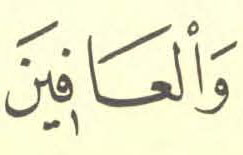 وَالْعَافِينَ